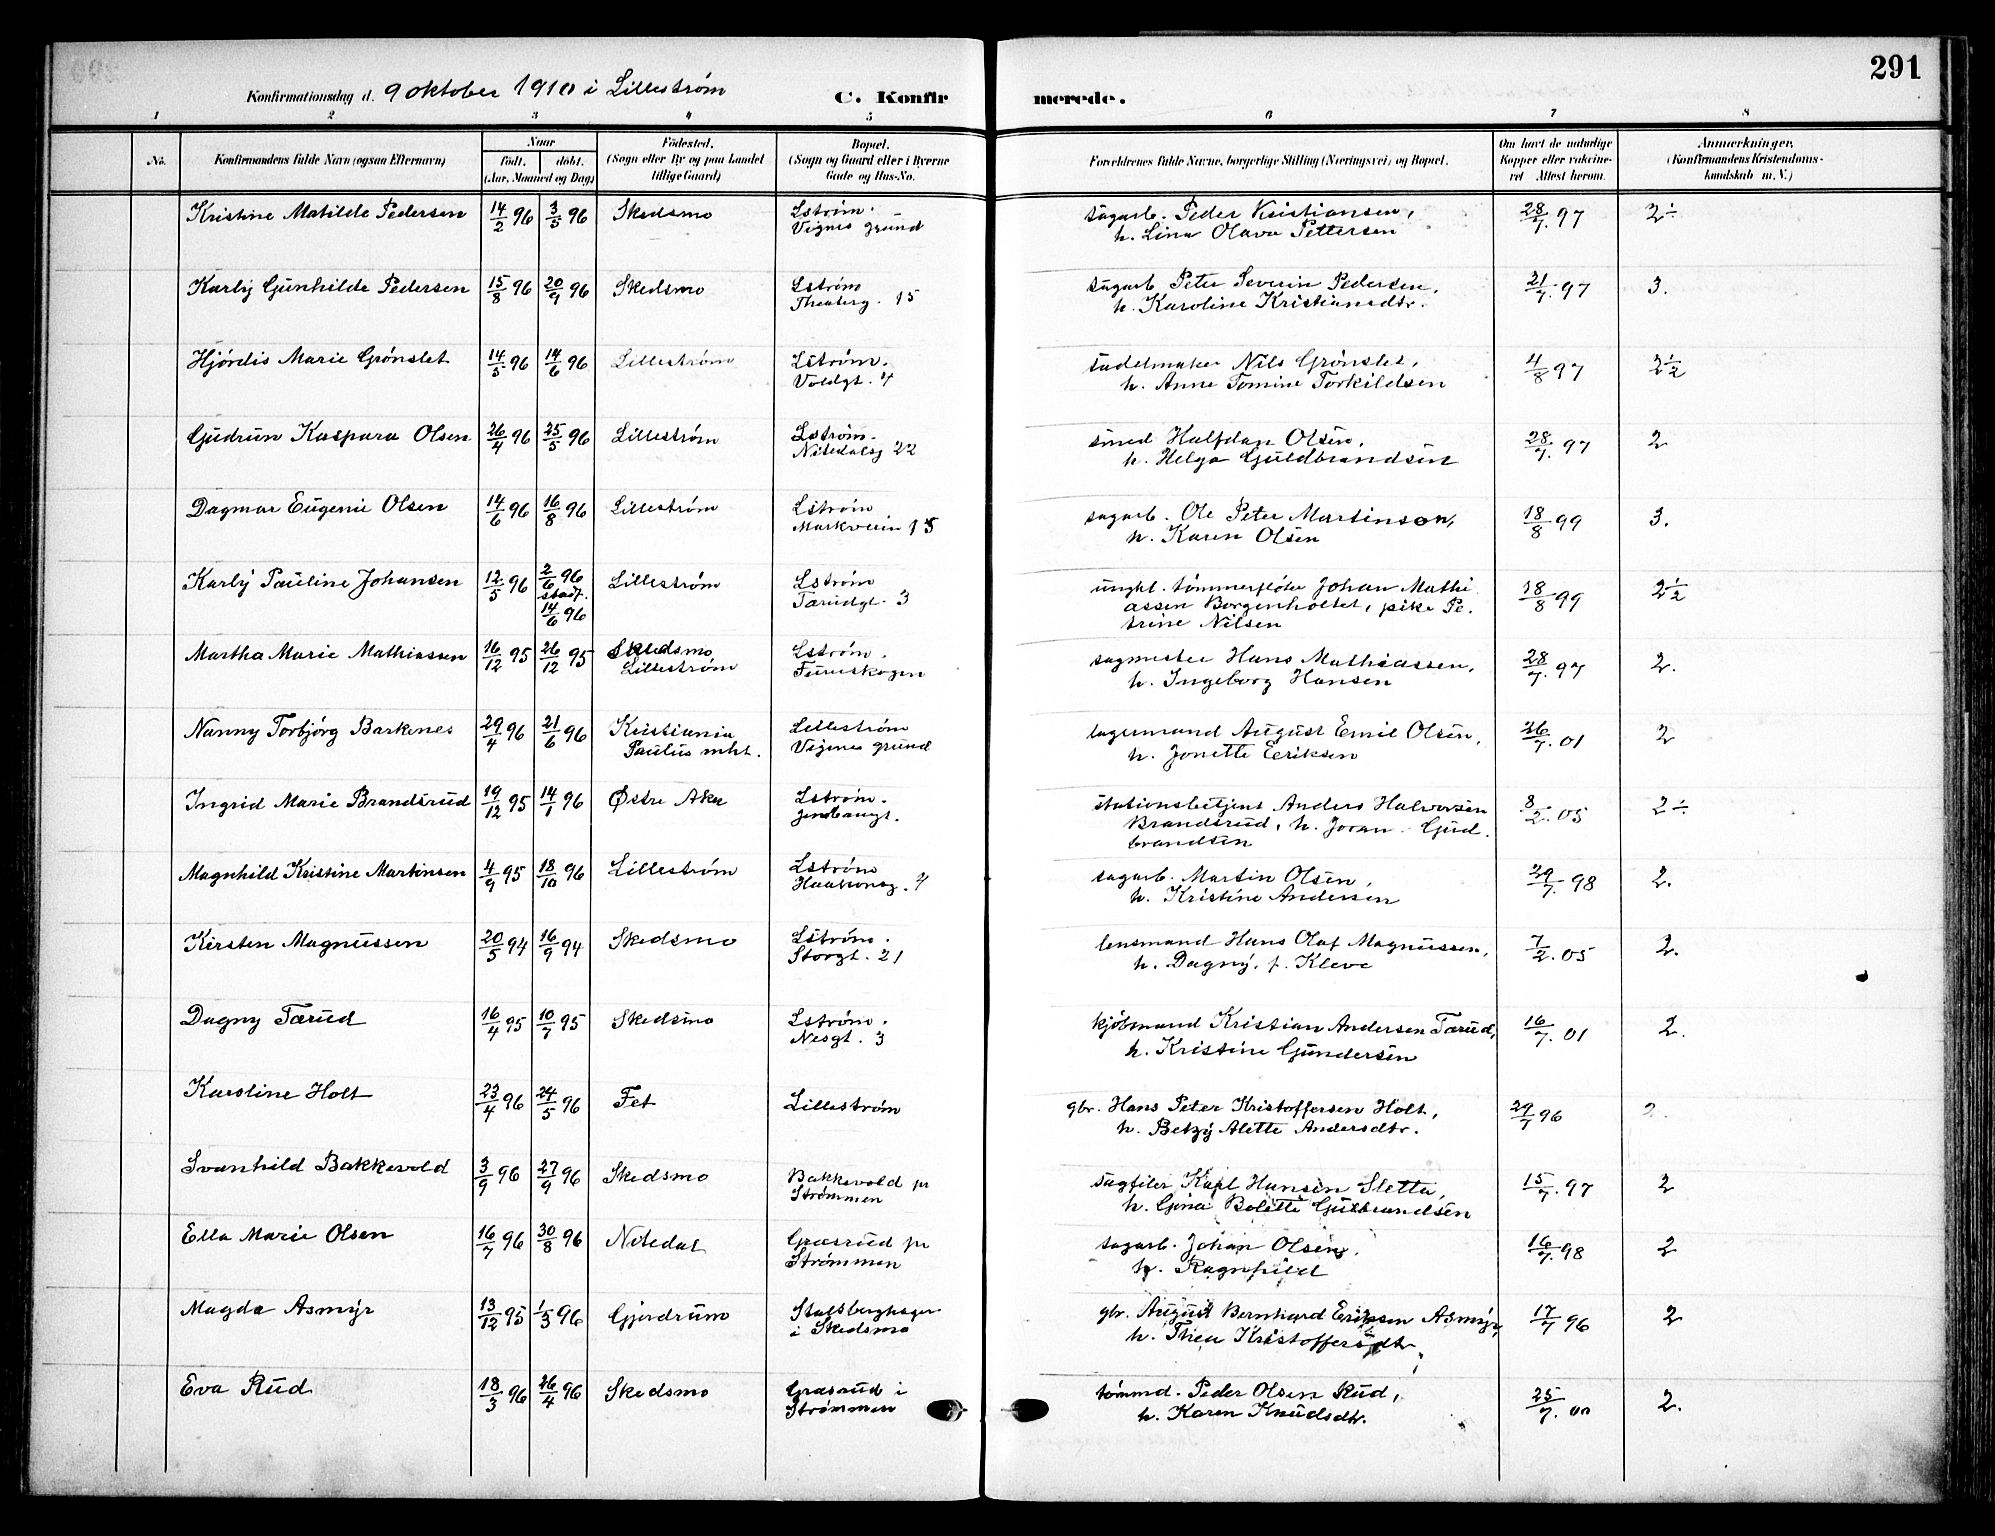 291
Konfirmationsdag d. 9 oktober 1910 i Lillestrøm C. Konfirmerede.
1 2 3 4 5 6 7 8
No. Konfirmandens fulde Navn (ogsaa Efternavn) Naar født. døbt. (Aar, Maaned og Dag) Fødested. (Sogn eller By og paa Landet tillige Gaard) Bopæl. (Sogn og Gaard eller i Byerne Gade og Hus-No. Forældrenes fulde Navne, borgerlige Stilling (Næringsvei) og Bopæl. Om havt de naturlige Kopper eller vaccineret Attest herom. Anmærkninger, (Konfirmandens Kristendomskundskab m. V.)
Kristine Matilde Pedersen 14/2 96 3/5 96 Skedsmo Lstrøm. Vignes grund sagarb. Peder Kristiansen, h. Lina Olava Pettersen 28/7. 97 2÷
Karly Gunhilde Pedersen 15/8 96 20/9 96 Skedsmo Lstrøm Theaterg. 15 sagarb Peter Severin Pedersen, h. Karoline Kristiansdtr. 21/7. 97 3.
Hjørdis Marie Grønslet 14/5 96 14/6 96 Lillestrøm Lstrøm. Voldgt. 4 sadelmaker Nils Grønslet, h. Anne Tomine Torkildsen 4/8 97 2½
Gudrun Kaspara Olsen 26/4 96 25/5 96 Lillestrøm Lstrøm. Nitedalsg 22 smed Halfdan Olsen, h. Helga Guldbrandsen 28/7. 97 2
Dagmar Eugenie Olsen 14/6 96 16/8 96 Lillestrøm Lstrøm Markveien 15 sagarb. Ole Peter Martinson, h. Karen Olsen 18/8 99 3.
Karly Pauline Johansen 12/5 96 2/6 96 stadf. 14/6 96 Lillestrøm Lstrøm Tærudgt. 3 ungkl. tømmerfløter Johan Mathiassen Borgenholtet, pike Petrine Nilsen 18/8 99 2½
Martha Marie Mathiassen 16/12 95 26/12 95 Skedsmo Lillestrøm Lstrøm. Furuskogen sagmester Hans Mathiassen, h. Ingeborg Hansen 28/7. 97 2.
Nanny Torbjørg Barkenes 29/4 96 21/6 96 Kristiania Paulus mht. Lillestrøm Vignes grund lagermand August Emil Olsen, h. Jonette Eriksen 26/7. 01 2
Ingrid Marie Brandsrud 19/12 95 14/1 96 Østre Aker Lstrøm. Jernbangt. stationsbetjent Anders Halvorsen Brandsrud, h. Joran Gudbrandsen 8/2. 05 2÷
Magnhild Kristine Martinsen 4/9 95 18/10 96 Lillestrøm Lstrøm Haakonsg. 7 sagarb. Martin Olsen, h. Kristine Andersen 29/7. 98 2.
Kirsten Magnussen 20/5 94 16/9 94 Skedsmo Lstrøm. Storgt. 21 lensmand Hans Olaf Magnussen, h. Dagny, f. Kleve 7/2. 05 2.
Dagny Tærud 16/4 95 10/7 95 Skedsmo Lstrøm. Nesgt. 3 kjøbmand Kristian Andersen Tærud, h. Kristine Gundersen 16/7. 01 2.
Karoline Holt 23/4 96 24/5 96 Fet Lillestrøm gbr. Hans Peter Kristoffersen Holt, h. Betzy Alette Andersdtr. 29/7 96 2.
Svanhild Bakkevold 3/9 96 27/9 96 Skedsmo Bakkevold pr Strømmen sagfiler Karl Hansen Sletta, h. Gina Bolette Gulbrandsen 15/7. 97 2
Ella Marie Olsen 16/7 96 30/8 96 Nitedal Graasrud pr Strømmen sagarb. Johan Olsen, h. Ragnhild 16/7. 98 2
Magda Asmyr 13/12 95 1/3 96 Gjerdrum Stalsberghagen i Skedsmo gbr. August Bernhard Eriksen Asmyr, h. Thea Kristoffersdtr. 17/7 96 2
Eva Rud 18/3 96 26/4 96 Skedsmo Graasrud i Strømmen tømmd. Peder Olsen Rud, h. Karen Knudsdtr. 25/7. 00 2.